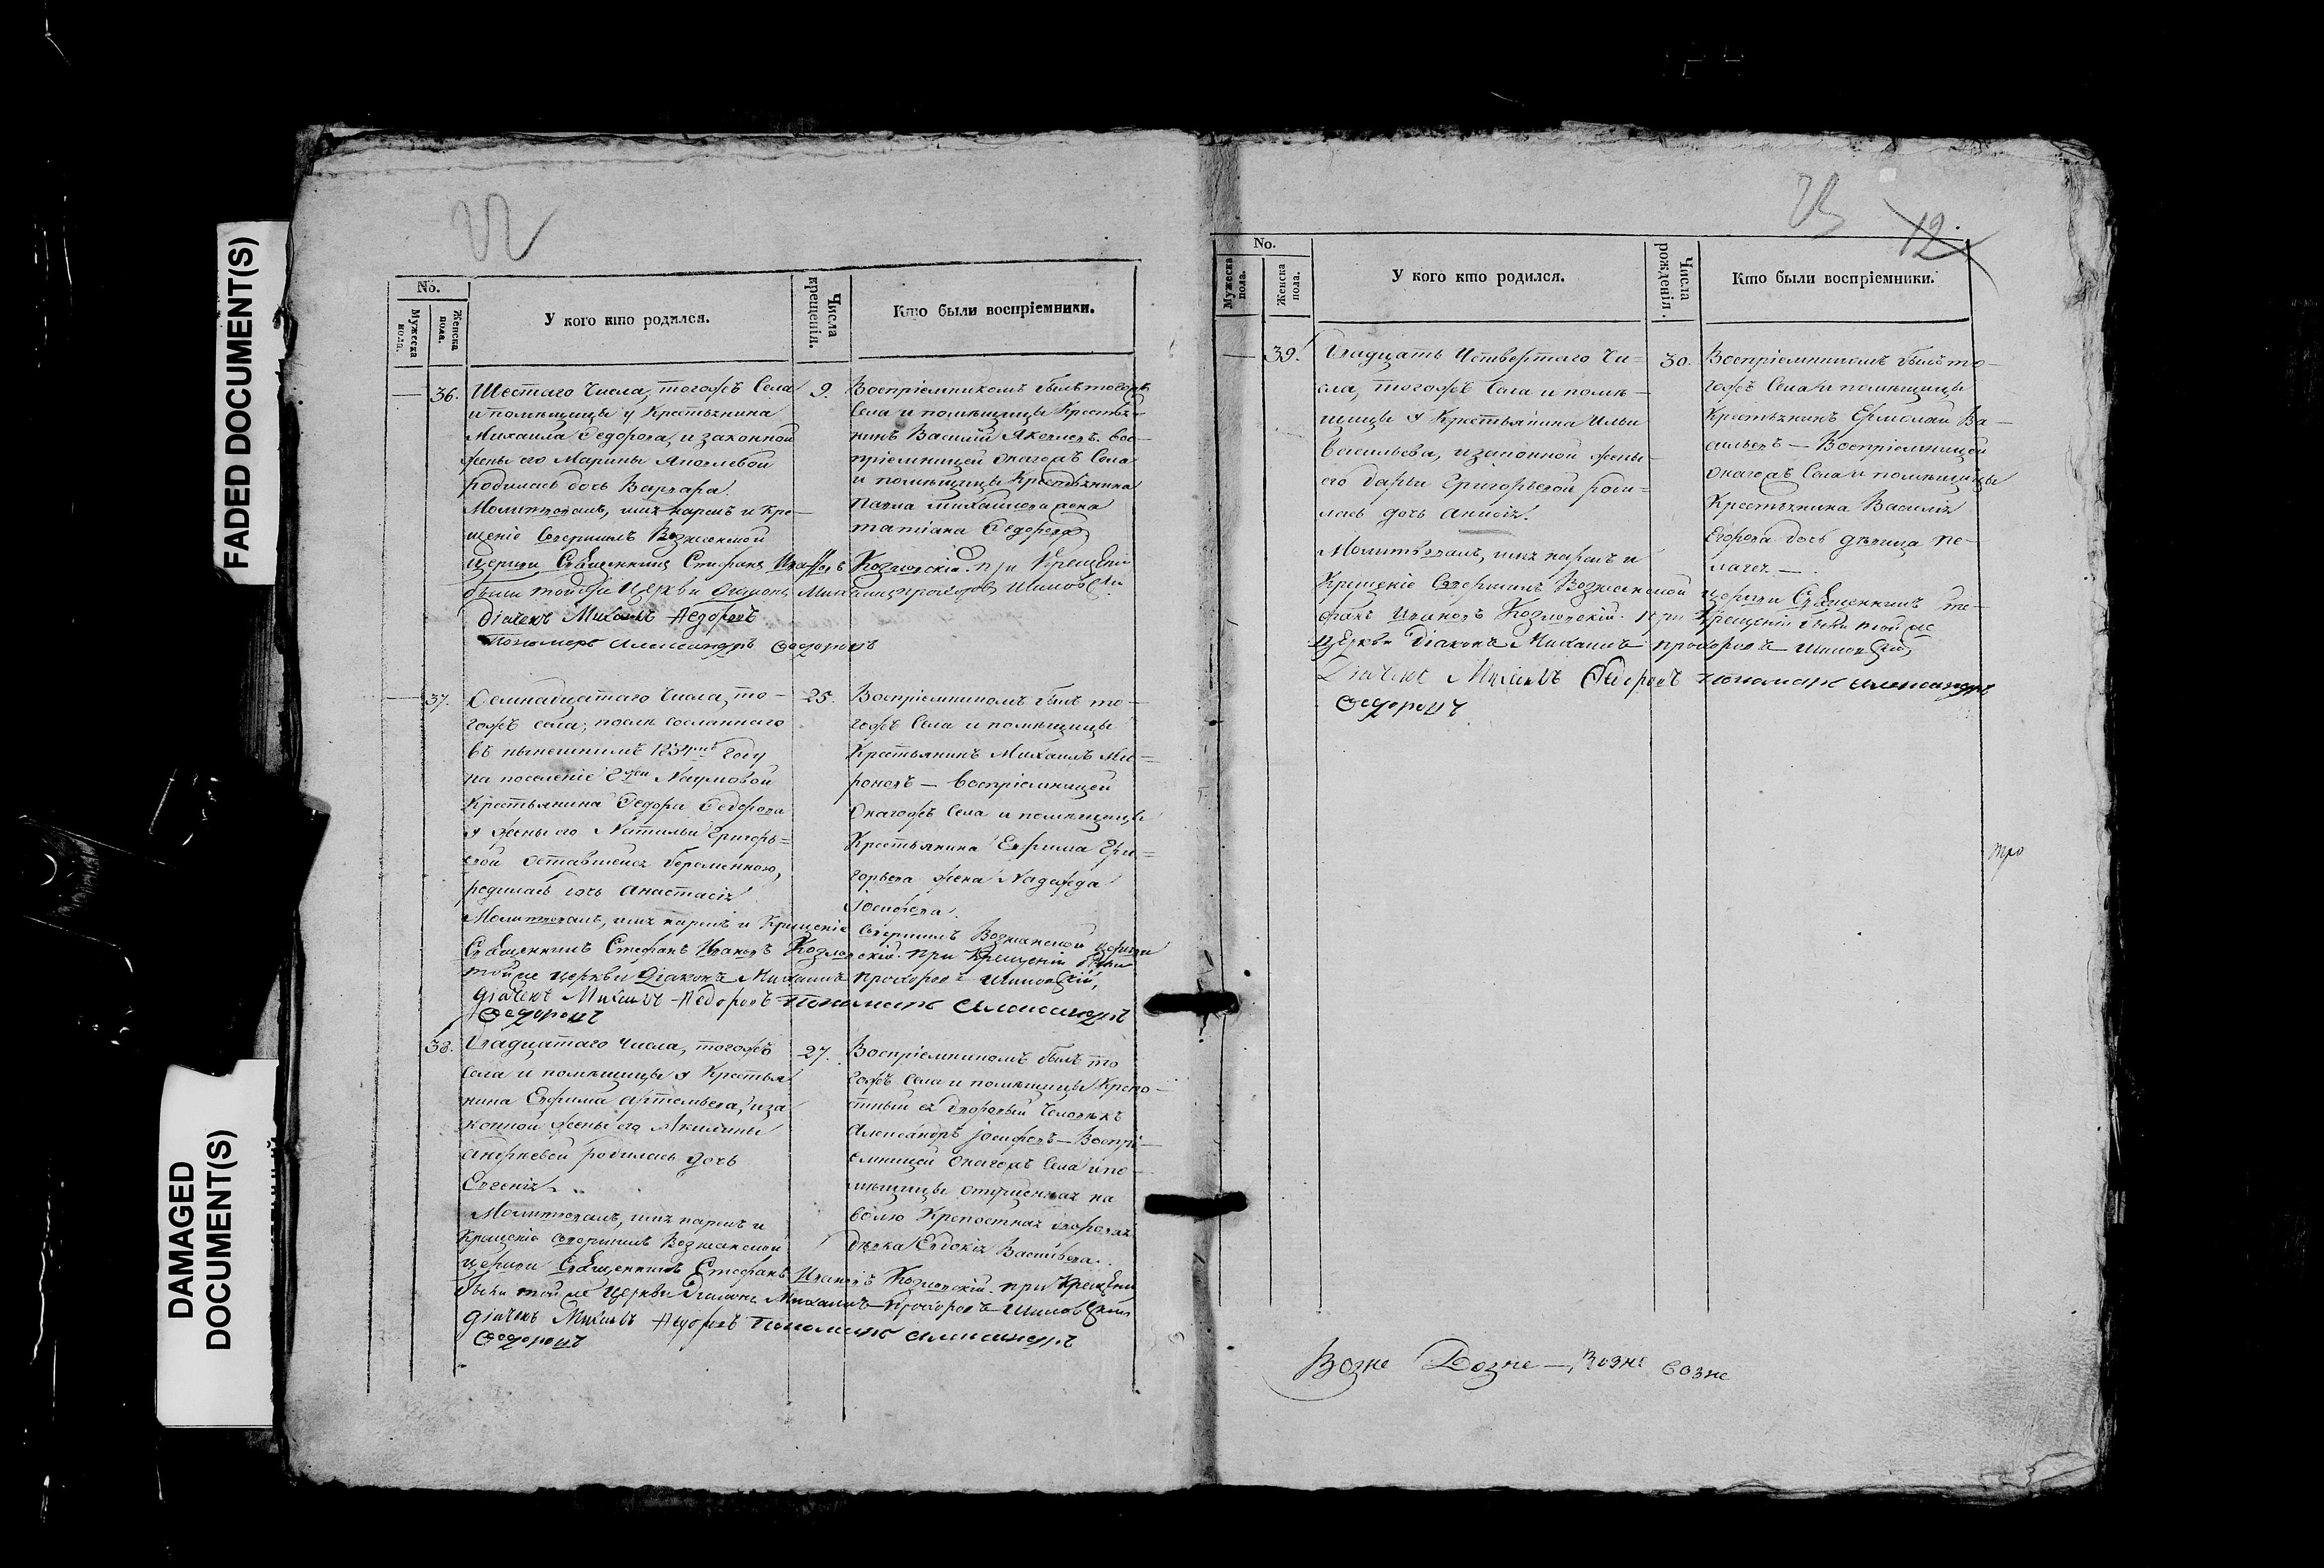 FADED DOCUMENT(S)
DAMAGED
DOCUMENT(S)
No.
Мужеска пола.
Женска пола.
У кого кто родился.
Числа крещенія.
Кто были воспріемники.
36.
Шестаго Числа, тогожъ Села
и помѣщицы у Крестьянина
Михаила Федорова, и законной
жены его Марины Яковлевой
родилась дочь Варвара.
Молитвовалъ, имя нарекъ и Кре-
щеніе Совершилъ
церкви Священникъ Стефанъ Ивановъ Козловскій. при Крещеніи
были тойже Церкви Діаконъ Михаилъ Прохоровъ
дьячекъ Михаилъ Федоровъ
Пономарь Александръ Федоровъ
9.
Воспріемникомъ былъ тогожъ
Села и помѣщицы Крестья-
нинъ Василій Яковлевъ. Вос-
пріемницей онагожъ Села
и помѣщицы Крестьянина
Павла Михайлова жена
Татіана Федорова
37.
Осмнадцатаго Числа, то-
гожъ села, послѣ сосланнаго
въ нынешнемъ 1834мъ Году
на поселеніе Наумовой
Крестьянина Федора Федорова
у жены его Натальи Григорь-
евой оставшейся беременною,
родилась дочь Анастасія
Молитвовалъ, имя нарекъ и Крещеніе Совершилъ церкви
Священникъ Стефанъ Ивановъ Козловскій. при Крещеніи были
тойже церкви Діаконъ Михаилъ Прохоровъ
дьячекъ Михаилъ Федоровъ Пономарь Александръ
Федоровъ
25.
Воспріемникомъ былъ то-
гожъ Села и помѣщицы
Крестьянинъ Михаилъ Ми-
роновъ — Воспріемницей
Онагожъ Села и помѣщицы
Крестьянина Ефима Гри-
горьева жена Надежда
Іосифова.
38.
Двадцатаго Числа, тогожъ
Села и помѣщицы у Крестья
нина Ефима Артемьева, и за
конной жены его Акилины
Андреевой родилась дочь
Евгенія.
Молитвовалъ, имя нарекъ и
Крещеніе совершилъ
церкви Священникъ Стефанъ Ивановъ Козловскій. при Крещеніи
были тойже Церкви Діаконъ Михаилъ Прохоровъ
дьячекъ Михаилъ Федоровъ Пономарь Александръ
Федоровъ
27.
Воспріемникомъ былъ то
гожъ Села и помѣщицы Крепо-
стный ея дворовый Человѣкъ
Александръ Іосифовъ — Воспрі-
емницей Онагожъ Села и по-
мѣщицы отпущенная на
волю Крепостная дворовая
Дѣвка Евдокія Васильева.
12
No.
Мужеска пола.
Женска пола.
У кого кто родился.
Числа рожденія.
Кто были воспріемники.
39.
Двадцать Четвертаго Чи-
сла, тогожъ Села и помѣ-
щицы у Крестьянина Ильи
Васильева, и законной жены
его Дарьи Григорьевой роди-
лась дочь Анисія.
Молитвовалъ, имя нарекъ и
Крещеніе Совершилъ церкви Священникъ Сте-
фанъ Ивановъ Козловскій. При Крещеніи были тойже
Церкви Діаконъ Михаилъ Прохоровъ
Дьячекъ Михаилъ Федоровъ Пономарь Александръ
Федоровъ
30.
Воспріемникомъ былъ то-
гожъ Села и помѣщицы
Крестьянинъ Ермолай Ва-
сильевъ — Воспріемницей
Онагожъ Села и помѣщицы
Крестьянина Василія
Егорова дочь дѣвица Пе-
лагея —
тро
Возне Возне — Возне возне